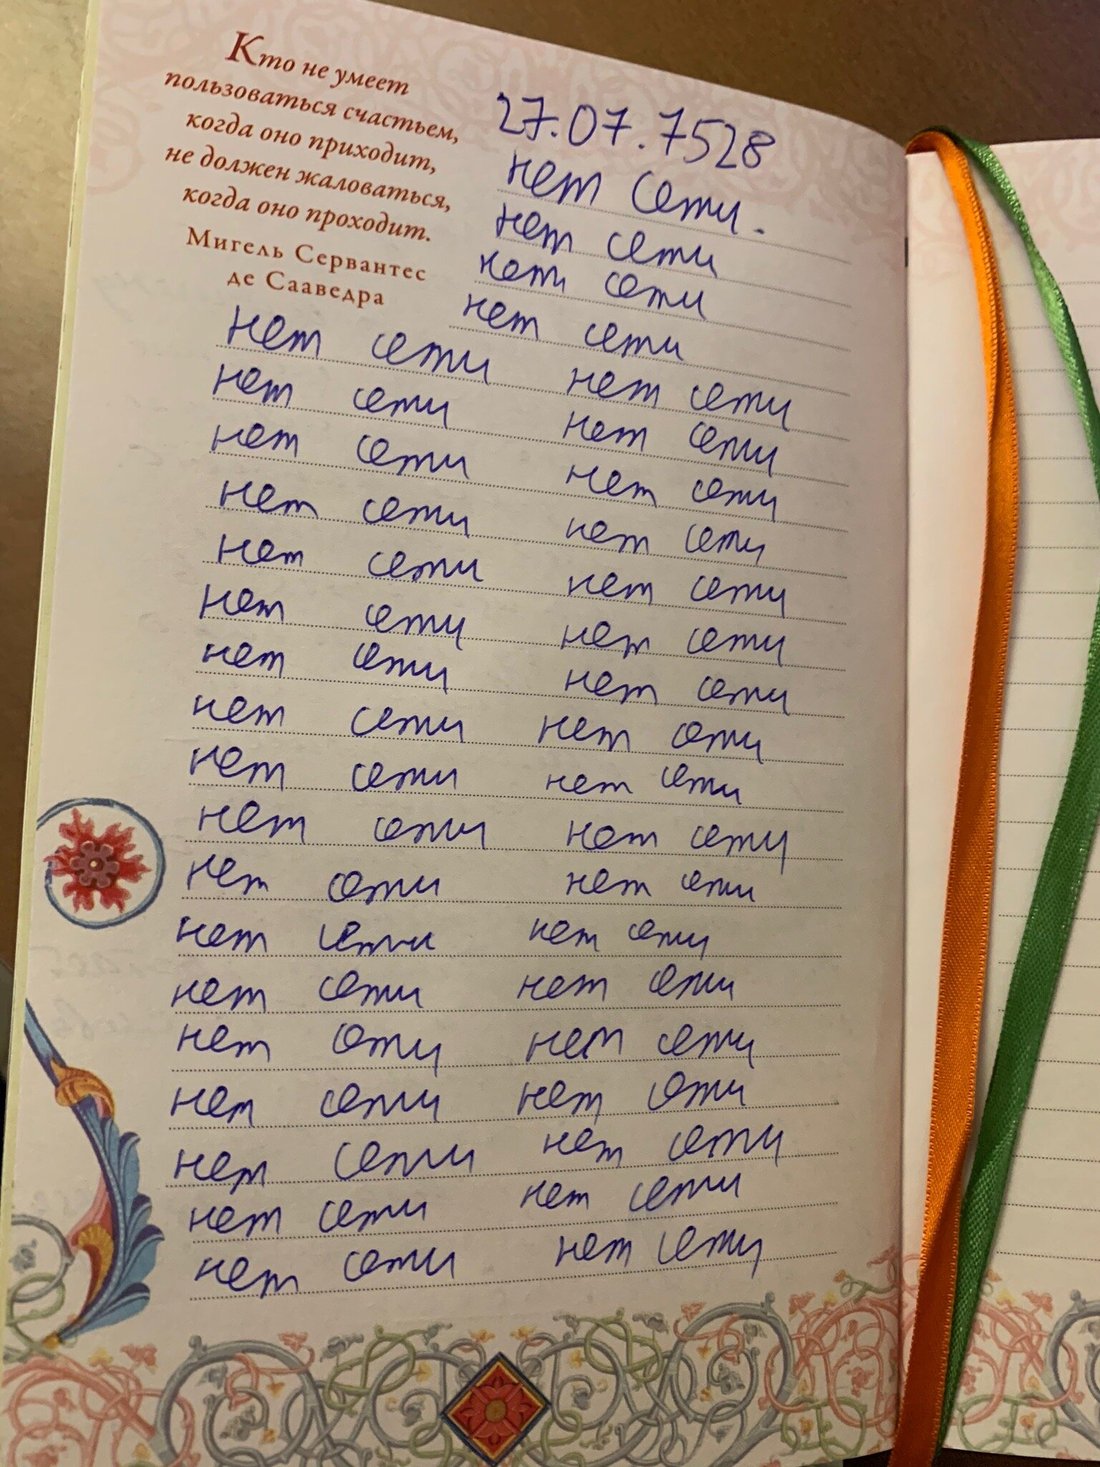 Кто не умеет
пользоваться счастьем,
когда оно приходит,
не должен жаловаться,
когда оно проходит.
Мигель Сервантес
де Сааведра
27.07.7528
нет сети.
нет сети
нет сети
нет сети
нет сети нет сети
нет сети нет сети
нет сети нет сети
нет сети нет сети
нет сети нет сети
нет сети нет сети
нет сети нет сети
нет сети нет сети
нет сети нет сети
нет сети нет сети
нет сети нет сети
нет сети нет сети
нет сети нет сети
нет сети нет сети
нет сети нет сети
нет сети нет сети
нет сети нет сети
нет сети нет сети